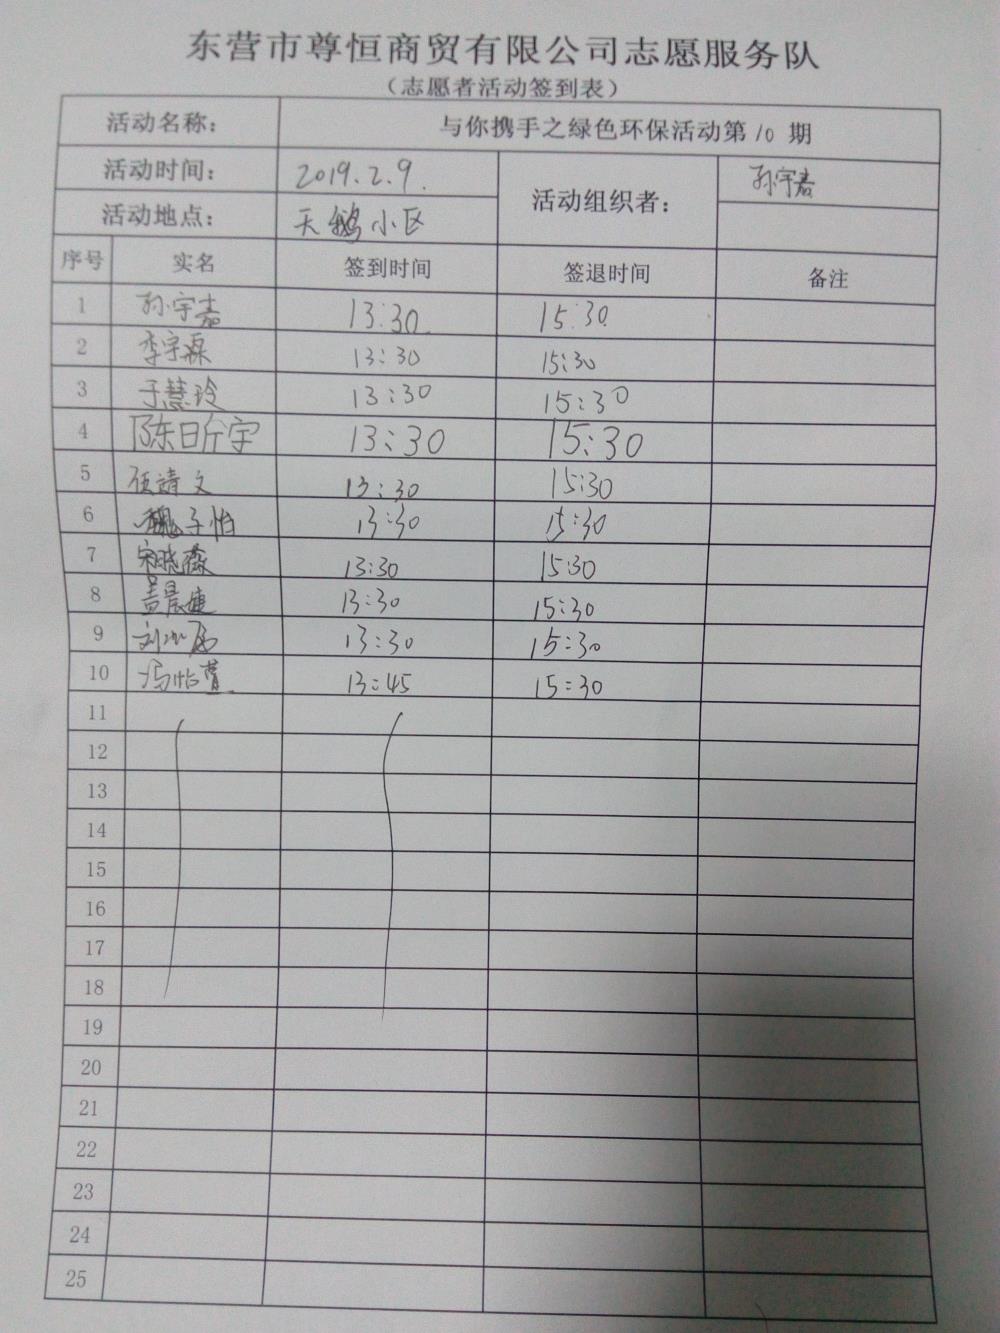 东营市尊恒商贸有限公司志愿服务队
（志愿者活动签到表）
活动名称： 与你携手之绿色环保活动第10 期
活动时间： 2019.2.9. 活动组织者： 孙宇嘉
活动地点： 天鹅小区
序号 实名 签到时间 签退时间 备注
1 孙宇嘉 13:30 15:30
2 李宇霖 13:30 15:30
3 于慧玲 13:30 15:30
4 陈昕宇 13:30 15:30
5 任靖文 13:30 15:30
6 魏子怡 13:30 15:30
7 宋晓薇 13:30 15:30
8 盖晨婕 13:30 15:30
9 刘 13:30 15:30
10 冯怡萱 13:45 15:30
11
12
13
14
15
16
17
18
19
20
21
22
23
24
25